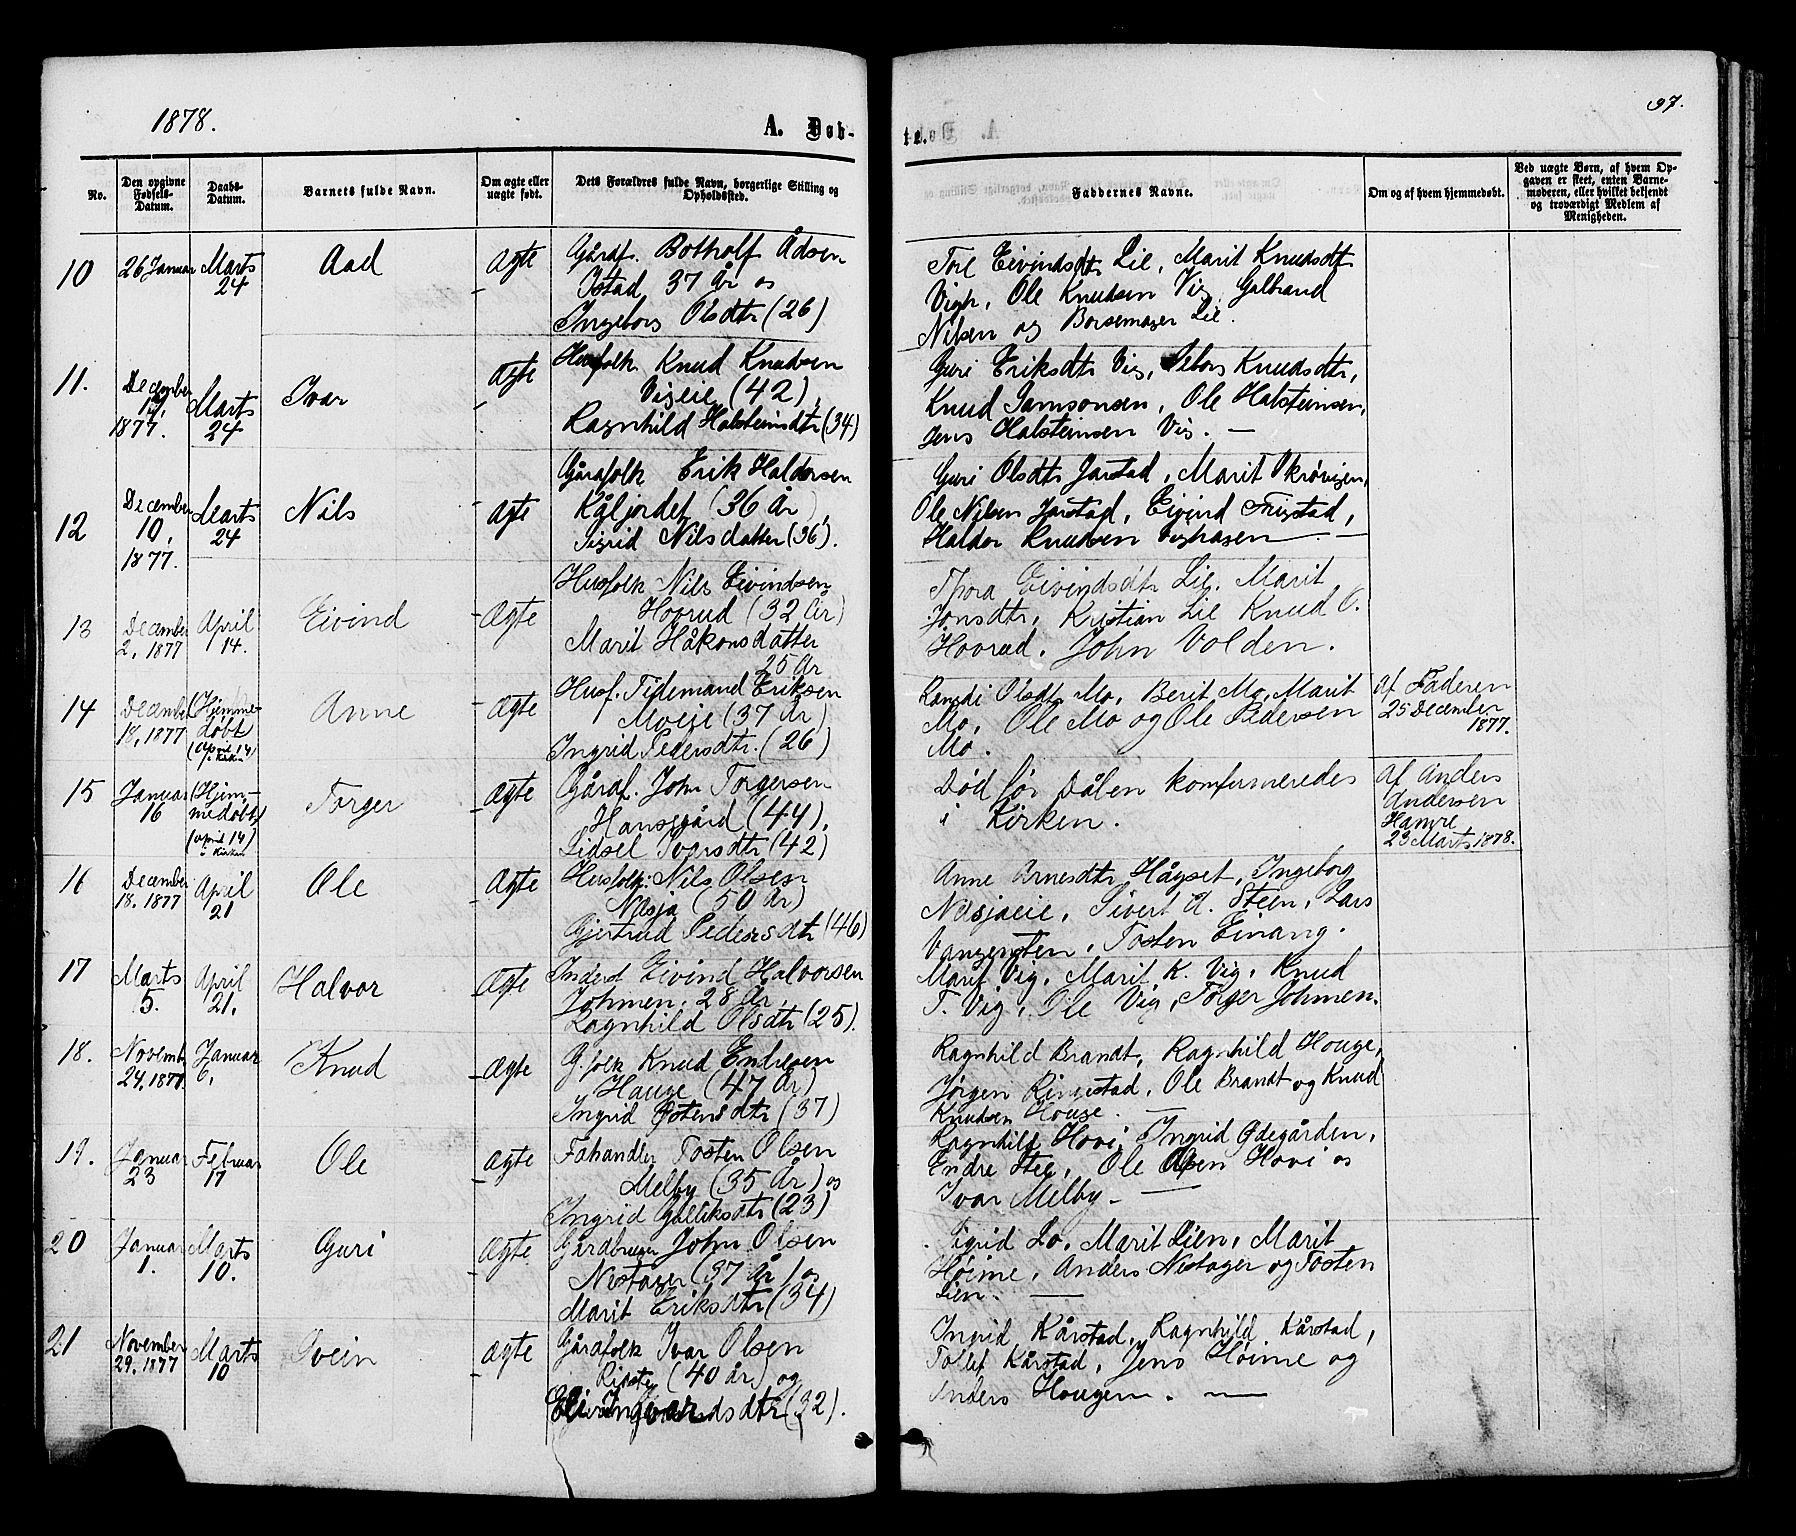 1878.
A. Døb-
te.
97.
No.
Den opgivne Fødsels-Datum.
Daabs-Datum.
Barnets fulde Navn.
Om ægte eller uægte født.
Dets Forældres fulde Navn, borgerlige Stilling og Opholdssted.
Faddernes Navne.
Om og af hvem hjemmedøbt.
Ved uægte Børn, af hvem Op-
gaven er skeet, enten Barne-
moderen, eller hvilket bekjendt
og troværdigt Medlem af
Menigheden.
10
26 Januar
Marts 24
Aad
Ægte
Gårdf. Botholf Ådsen
Istad 37 År og
Ingeborg Olsdtr (26)
Toril Eivindsdtr Lie, Marit Knudsdtr
Vigh, Ole Knudsen Vig, Gulbrand
Nilsen og Lie.
11.
December 17, 1877.
Marts 24
Ivar
Ægte
Husfolk Knud Knudsen
Vigeie (42),
Ragnhild Halsteinsdtr (34)
Guri Eriksdtr Vig, Knudsdtr,
Knud Samsonsen, Ole Halsteinsen,
Jens Halsteinsen Vig. —
12
December 10, 1877.
Marts 24
Nils
Ægte
Gårdfolk Erik Haldorsen
(36 År),
Sigrid Nilsdatter (36).
Guri Olsdtr Jarstad, Marit
Ole Nilsen Jarstad, Eivind
Haldor Knudsen
13
December 2, 1877
April 14.
Eivind
Ægte
Husfolk Nils Eivindsen
Hovrud (32 År)
Marit Håkonsdatter
25 År
Thora Eivindsdtr Lie, Marit
Jonsdtr, Kristian Lie Knud O.
Hovrud. John Volden.
14
December 18, 1877
(Hjemme-
døbt
(April 14)
i Kirken
Anne
Ægte
Husf. Tidemand Eriksen
Moeie (37 År)
Ingrid Pedersdtr. (26)
Randi Olsdtr Mo, Berit Mo, Marit
Mo, Ole Mo og Ole Pedersen
Mo.
Af Faderen
25 December
1877.
15
Januar 16
(Hjem-
medøbt)
(April 14)
i Kirken
Torger
Ægte
Gårdf. John Torgersen
Hansegård (44),
Lidsel Ivarsdtr (42)
Død før Dåben konfirmeredes
i Kirken.
Af Anders
Andersen
Hamre
23 Marts 1878.
16
December 18. 1877
April 21
Ole
Ægte
Husfolk: Nils Olsen
Næsja (50 År)
Gjertrud Pedersdtr (46)
Anne Arnesdtr Håyset, Ingeborg
Næsjaeie, Sivert A. Steen, Lars
Vangensten, Tosten Einang.
17
Marts 5.
April 21.
Halvor
Ægte
Inderst Eivind Halvorsen
Johmen. 28 År,
Ragnhild Olsdtr (25).
Marit Vig, Marit K. Vig, Knud
T. Vig, Ole Vig, Torger Johmen.
18.
Novemb. 24, 1877.
Januar 6,
Knud
Ægte
G.folk Knud Endresen
Hauge (47 År)
Ingrid Østensdtr (37)
Ragnhild Brandt, Ragnhild Houge,
Jørgen Ringestad, Ole Brandt og Knud
Knudsen Houge. —
19.
Januar 23
Februar 17
Ole
Ægte
Fahandler Tosten Olsen
Melby (35 År) og
Ingrid Gulliksdtr (23)
Ragnhild Hovi, Ingrid Ødegården,
Endre Steg, Ole Hovi og
Ivar Melby. —
20
Januar 1.
Marts 10.
Guri
Ægte
Gårdbruger John Olsen
Nestager (37 År) og
Marit Eriksdtr (34)
Sigrid Lo, Marit Lien, Marit
Høime, Anders Nestager og Tosten
Lien. —
21
November 29. 1877
Marts 10
Svein
Ægte
Gårdfolk Ivar Olsen
(40 år) og
(32).
Ingrid Kårstad, Ragnhild Kårstad,
Tollef Kårstad, Jens Høime og
Anders Hougen. —